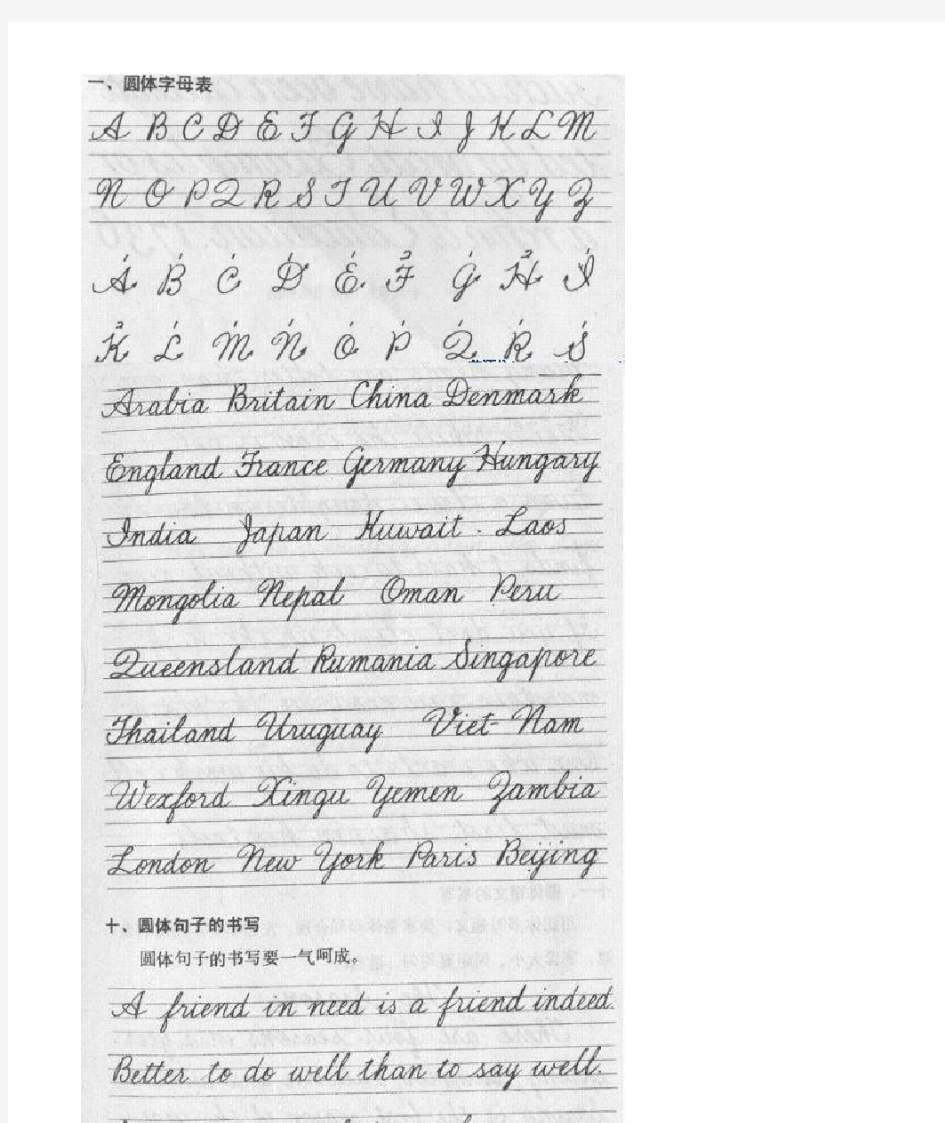 一、圆体字母表
A B C D E F G H I J K L M
N O P Q R S T U V W X Y Z
1 1 1 1 1 2 1 2 1
A B C D E F G H I
2 1 1 1 1 1 1 1 1
K L M N O P Q R S
Arabia Britain China Denmark
England France Germany Hungary
India Japan Kuwait. Laos
Mongolia Nepal Oman Peru
Queensland Rumania Singapore
Thailand Uruguay Viet-Nam
Wexford Xingu Yemen Zambia
London New York Paris Beijing
十、圆体句子的书写
圆体句子的书写要一气呵成。
A friend in need is a friend indeed.
Better to do well than to say well.